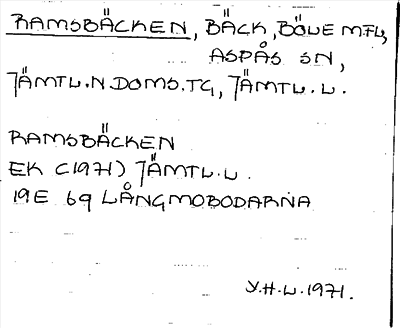 RAMSBÄCKEN, BÄCK, BÖLE M.FL,
ASPÅS SN,
JÄMTL.N.DOMS.TG, JÄMTL.L.
RAMSBÄCKEN
EK (1971) JÄMTL.L.
19E 6g LÅNGMOBODARNA
Y.H.L.1971.